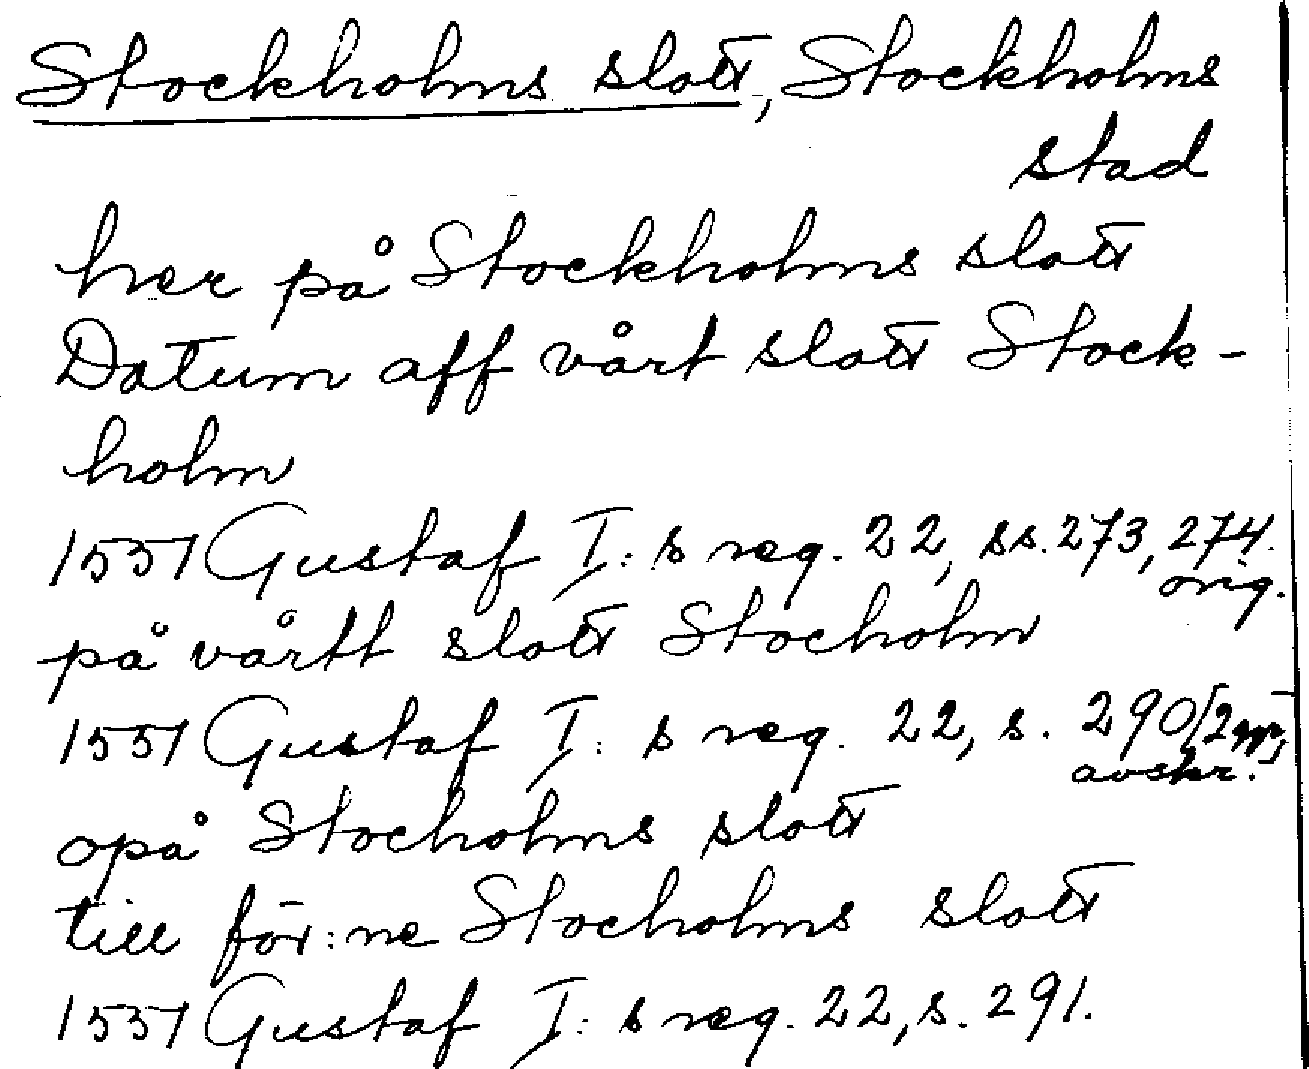 Stockholms slott, Stockholms
stad
her på Stockholms slott
Datum aff vårt slott Stock-
holm
1551 Gustaf I:s reg. 22, ss. 273, 274.
orig.
på vårtt slott Stocholm
1551 Gustaf I:s reg. 22, s. 290 [2 ggr,
avskr.]
opå Stocholms slott
till för:ne Stocholms slott
1551 Gustaf I:s reg. 22, s. 291.